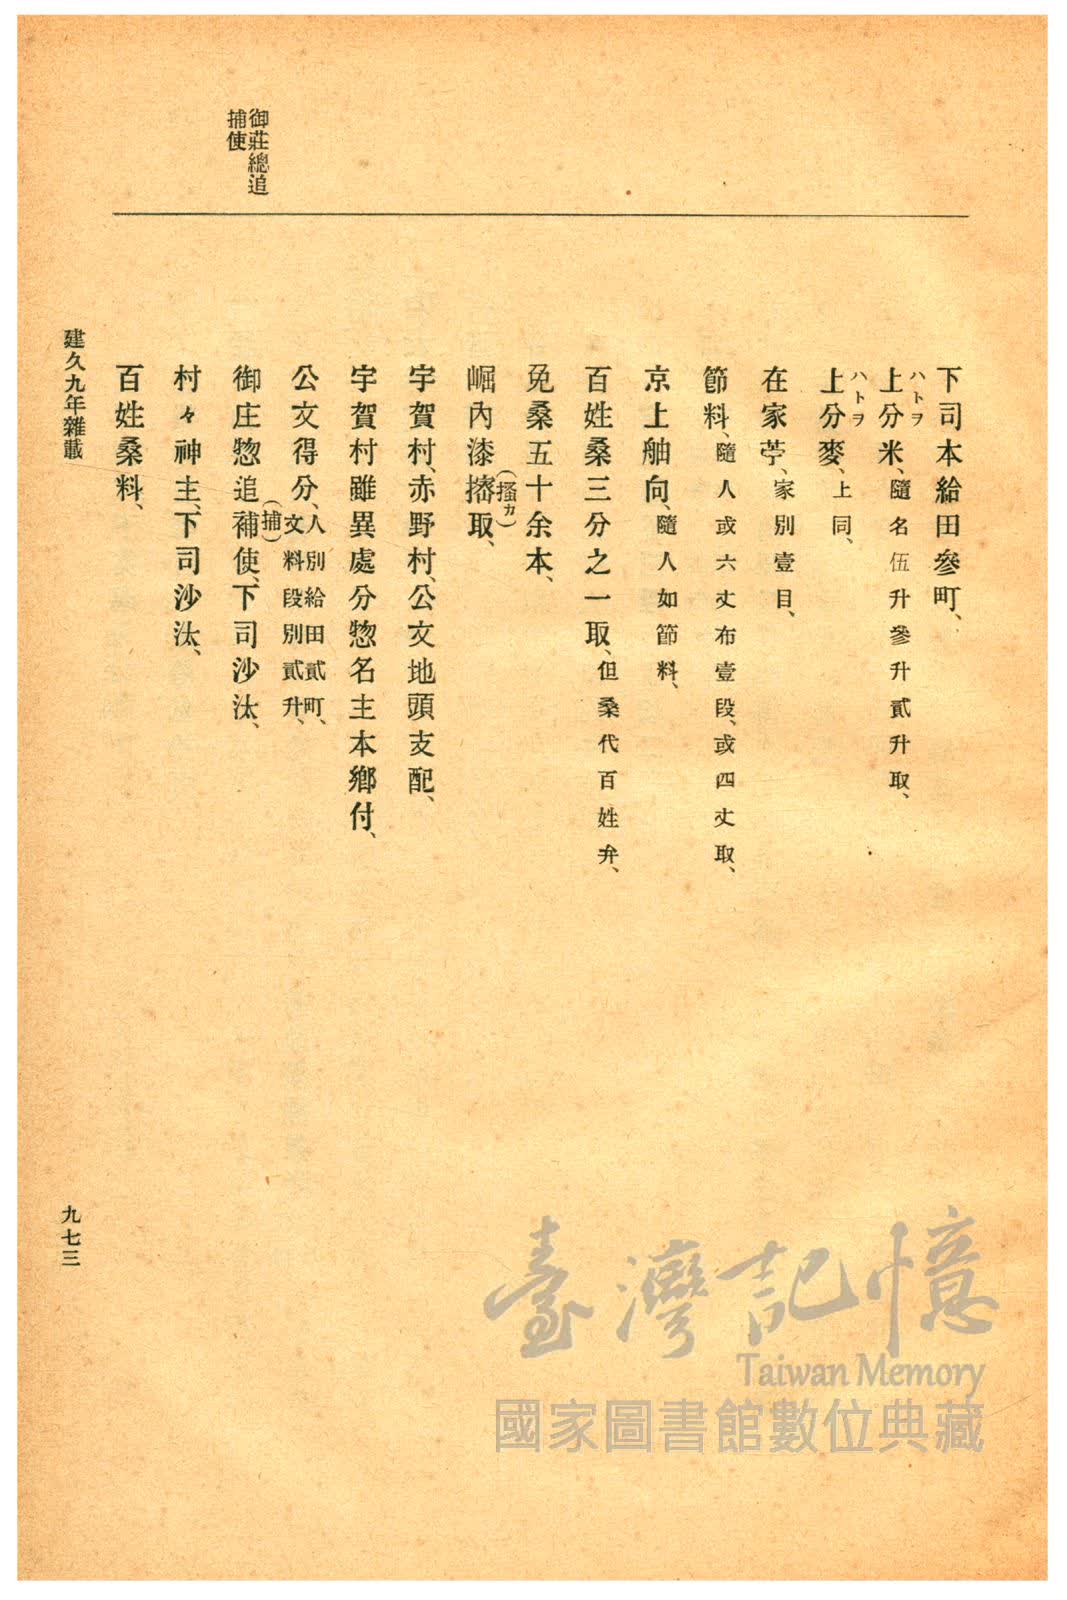 御莊總追
捕使
下司本給田參町、
上分米、隨名伍升參升貳升取、
ハトヲ
上分麥、上同、
ハトヲ
在家苧、家別壹目、
節料、隨人或六丈布壹段、或四丈取、
京上舳向、隨人如節料、
百姓桑三分之一取、但桑代百姓弁、
免桑五十余本、
崛內漆㨯取、
(搔カ)
宇賀村、赤野村、公文地頭支配、
宇賀村雖異處分惣名主本鄉付、
公文得分、人別給田貳町、
文料段別貳升、
御庄惣追補使、下司沙汰、
(捕)
村々神主、下司沙汰、
百姓桑料、
建久九年雜載
九七三
臺灣記憶
Taiwan Memory
國家圖書館數位典藏